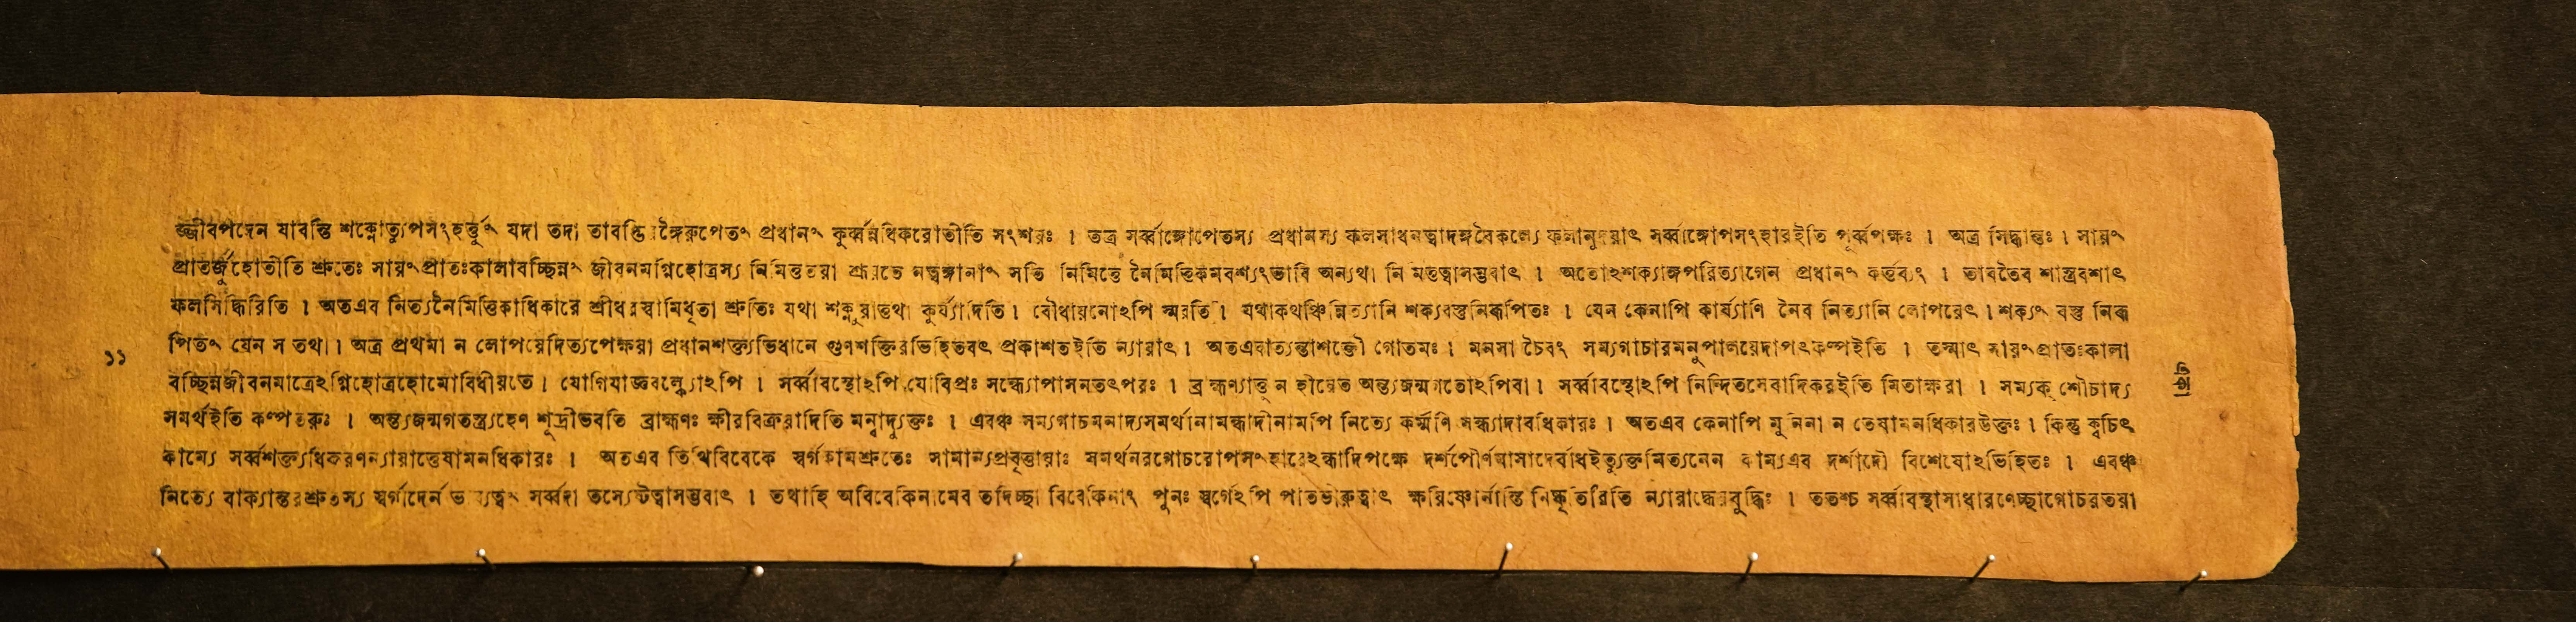 জ্জীবপদেন যাবন্তি শক্নোত্যুপসংহর্ত্তুং যদা তদা তাবদ্ভিরঙ্গৈরুপেতং প্রধানং কুর্ব্বন্নধিকরোতীতি সংশয়ঃ । তত্র সর্ব্বাঙ্গোপেতস্য প্রধানস্য ফলসাধনত্বাদঙ্গবৈকল্যে ফলানুদয়াৎ সর্ব্বাঙ্গোপসংহারইতি পূর্ব্বপক্ষঃ । অত্র সিদ্ধান্তঃ । সায়ং
প্রাতর্জুহোতীতি শ্রুতেঃ সায়ংপ্রাতঃকালাবচ্ছিন্নং জীবনমগ্নিহোত্রস্য নিমিত্ততয়া শ্রূয়তে নত্বঙ্গানাং সতি নিমিত্তে নৈমিত্তিকমবশ্যংভাবি অন্যথা নিমিত্তত্বাসম্ভবাৎ । অতোঽশক্যাঙ্গপরিত্যাগেন প্রধানং কর্ত্তব্যং । তাবতৈব শাস্ত্রবশাৎ
ফলসিদ্ধিরিতি । অতএব নিত্যনৈমিত্তিকাধিকারে শ্রীধরস্বামিধৃতা শ্রুতিঃ যথা শক্নুয়াত্তথা কুর্য্যাদিতি । বৌধায়নোঽপি স্মরতি । যথাকথঞ্চিন্নিত্যানি শক্যবস্তুনিরূপিতঃ । যেন কেনাপি কার্য্যাণি নৈব নিত্যানি লোপয়েৎ । শক্যং বস্তু নিরূ
পিতং যেন স তথা । অত্র প্রথমা ন লোপয়েদিত্যপেক্ষয়া প্রধানশক্ত্যভিধানে গুণশক্তিরভিহিতবৎ প্রকাশতইতি ন্যায়াৎ । অতএবাত্যন্তাশক্তৌ গোতমঃ । মনসা চৈবং সম্যগাচারমনুপালয়েদাপৎকল্পইতি । তস্মাৎ সায়ংপ্রাতঃকালা
১১
বচ্ছিন্নজীবনমাত্রেঽগ্নিহোত্রহোমোবিধীয়তে । যোগিযাজ্ঞবল্ক্যোঽপি । সর্ব্বাবস্থোঽপি যোবিপ্রঃ সন্ধ্যোপাসনতৎপরঃ । ব্রাহ্মণ্যাত্তু ন হীয়েত অন্ত্যজন্মগতোঽপিবা । সর্ব্বাবস্থোঽপি নিন্দিতসেবাদিকরইতি মিতাক্ষরা । সম্যক্ শৌচাদ্য
সমর্থইতি কল্পতরুঃ । অন্ত্যজন্মগতস্ত্র্যহেণ শূদ্রীভবতি ব্রাহ্মণঃ ক্ষীরবিক্রয়াদিতি মন্বাদ্যুক্তঃ । এবঞ্চ সম্যগাচমনাদ্যসমর্থানামন্ধাদীনামপি নিত্যে কর্ম্মণি সন্ধ্যাদাবধিকারঃ । অতএব কেনাপি মুনিনা ন তেষামনধিকারউক্তঃ । কিন্তু ক্বচিৎ
কাম্যে সর্ব্বশক্ত্যধিকরণন্যায়াত্তেষামনধিকারঃ । অতএব তিথিবিবেকে স্বর্গকামশ্রুতেঃ সামান্যপ্রবৃত্তায়াঃ সমর্থনরগোচরোপসংহারেঽন্ধাদিপক্ষে দর্শপৌর্ণমাসাদের্বাধইত্যুক্তমিত্যনেন কাম্যএব দর্শাদৌ বিশেষোঽভিহিতঃ । এবঞ্চ
নিত্যে বাক্যান্তরশ্রুতস্য স্বর্গাদের্ন ভাব্যত্বং সর্ব্বদা তস্যেষ্টত্বাসম্ভবাৎ । তথাহি অবিবেকিনামেব তদিচ্ছা বিবেকিনাং পুনঃ স্বর্গেঽপি পাতভীরুত্বাৎ ক্ষয়িষ্ণোর্নাস্তি নিষ্কৃতিরিতি ন্যায়াদ্ধেয়বুদ্ধিঃ । ততশ্চ সর্ব্বাবস্থাসাধারণেচ্ছাগোচরতয়া